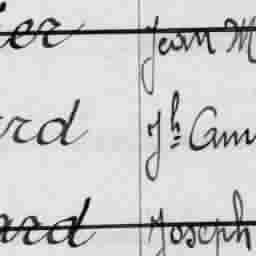 ier Jean M
rd Jh Ann
ard Joseph